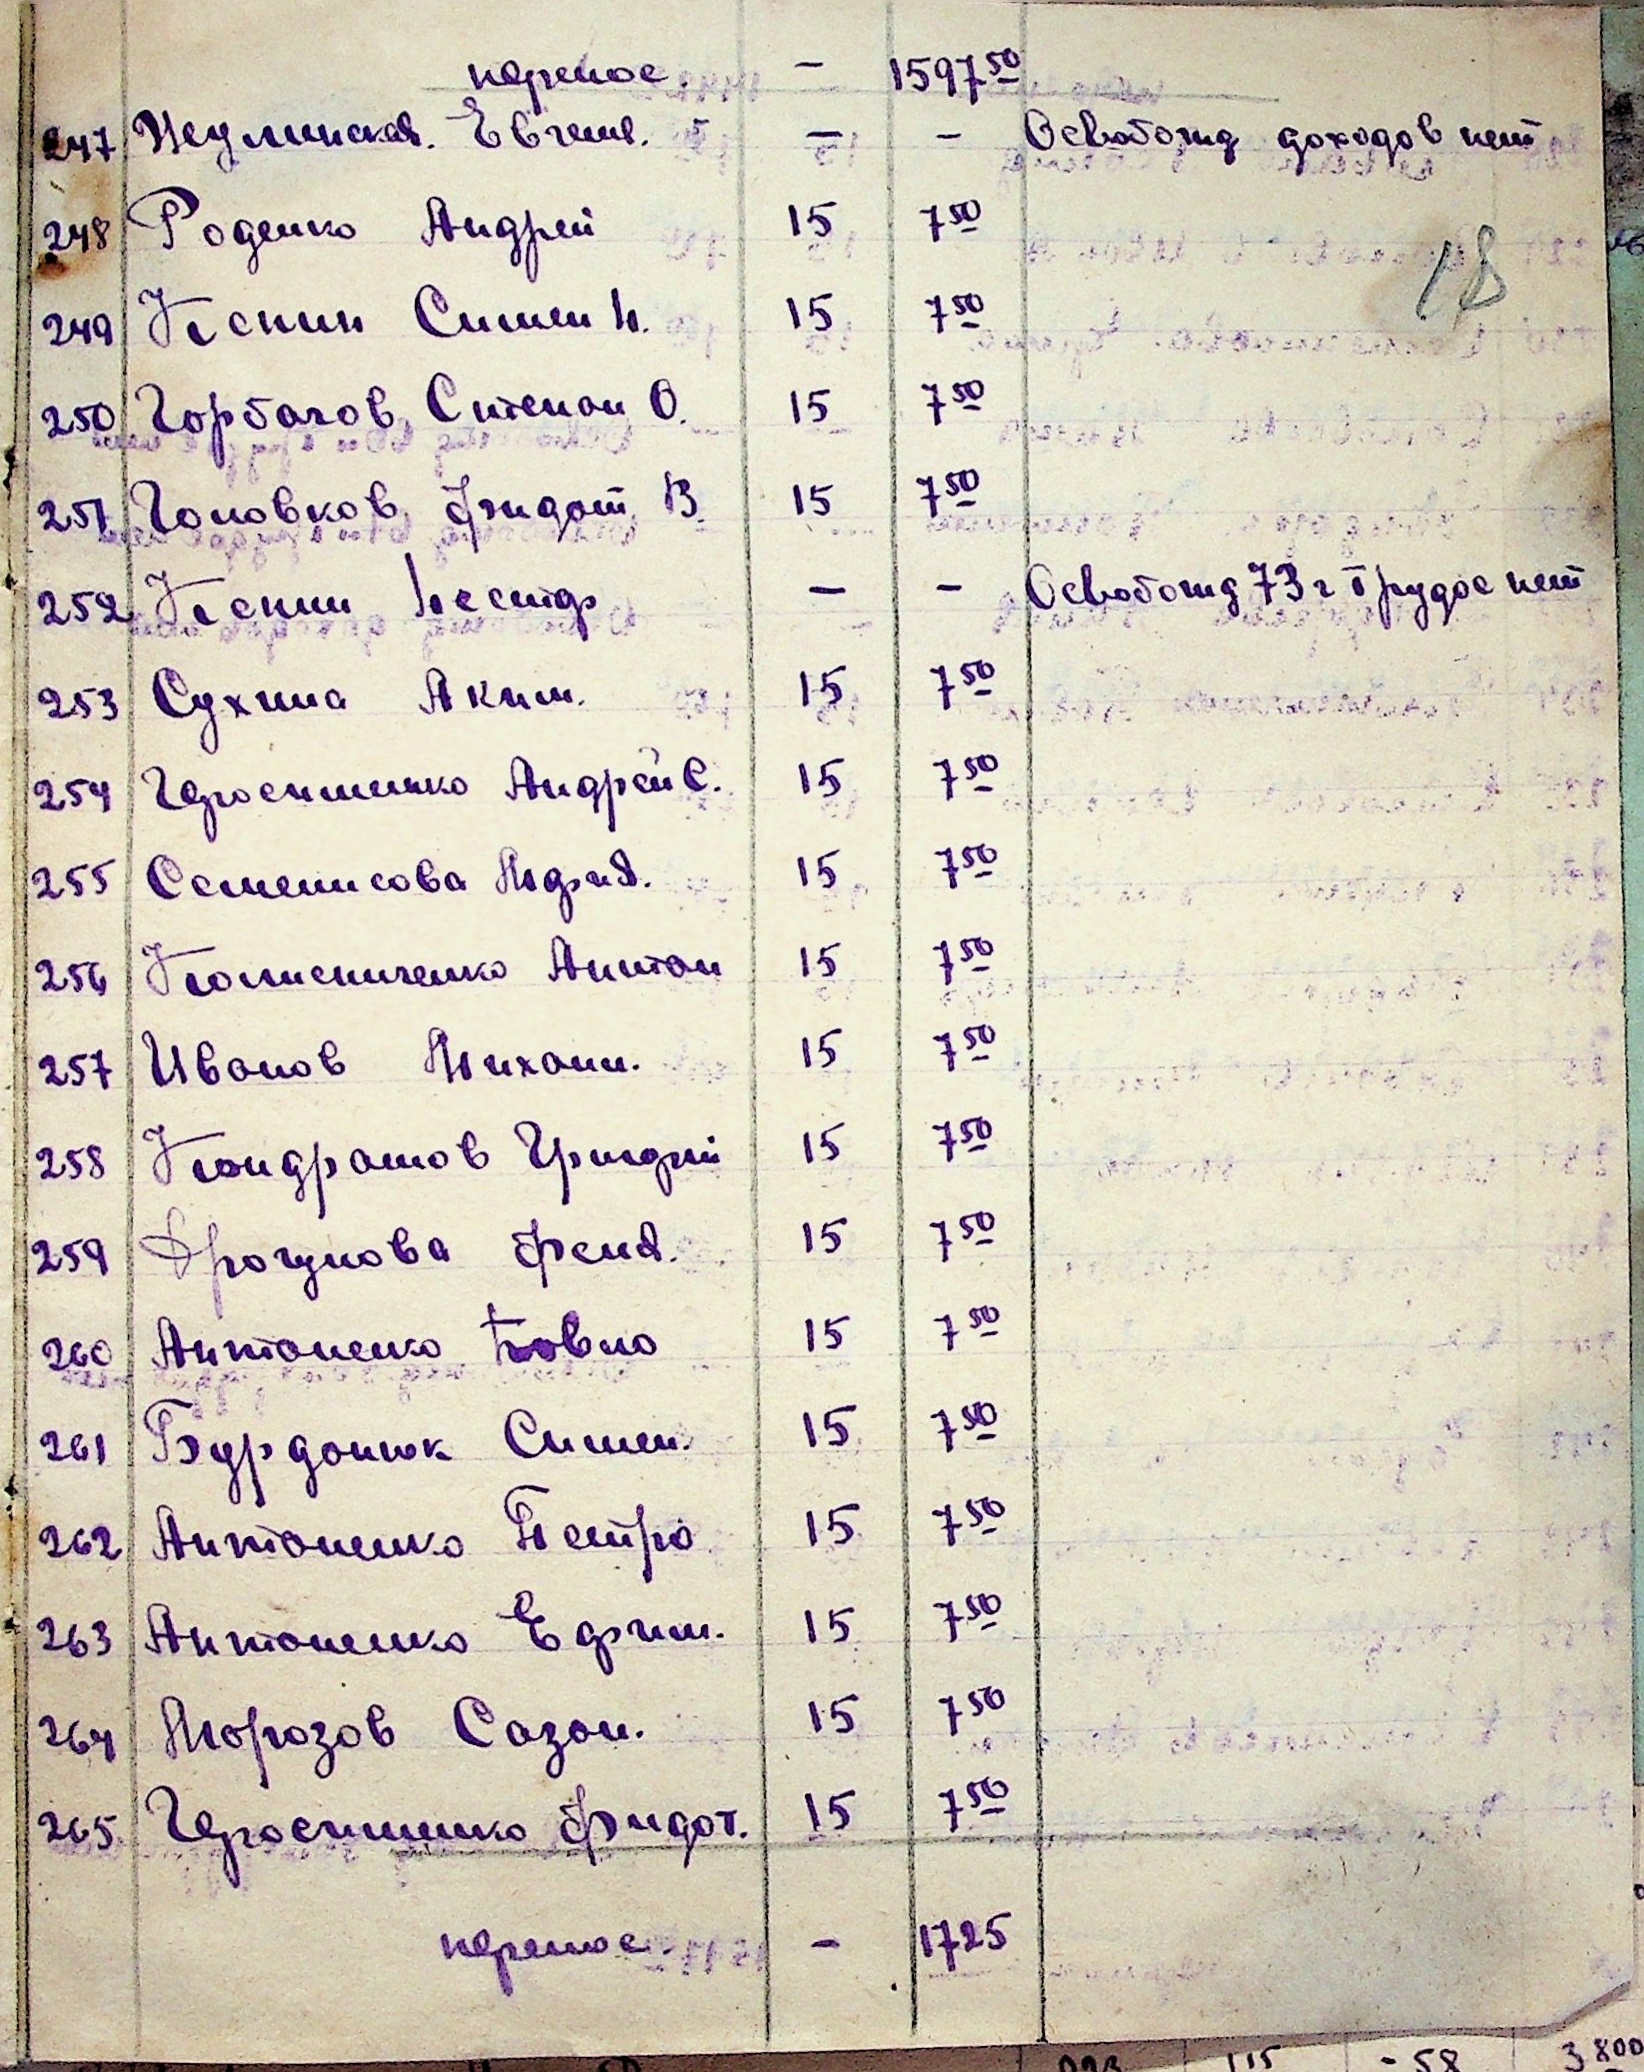 перенос - 1597 50
247 Жулинская. Евгения. - - Освобожд доходов нет
248 Роденко Андрей 15 7 50
18
249 Кенин Симен И. 15 7 50
250 Горбачов Степан О. 15 7 50
251 Головков Фидот В 15 7 50
252 Кенин Нестор - - Освобожд 73 г трудос нет
253 Сухина Аким. 15 7 50
254 Герасименко Андрей С. 15 7 50
255 Семенисова Мария. 15 7 50
256 Колисниченко Антон 15 7 50
257 Иванов Михаил. 15 7 50
258 Кондрашов Григорий 15 7 50
259 Драгунова Фекла. 15 7 50
260 Антоненко Павло 15 7 50
261 Бурдонюк Симен. 15 7 50
262 Антоненко Петро 15 7 50
263 Антоненко Ефим. 15 7 50
264 Морозов Сазон. 15 7 50
265 Герасименко Фидот. 15 7 50
перенос - 1725